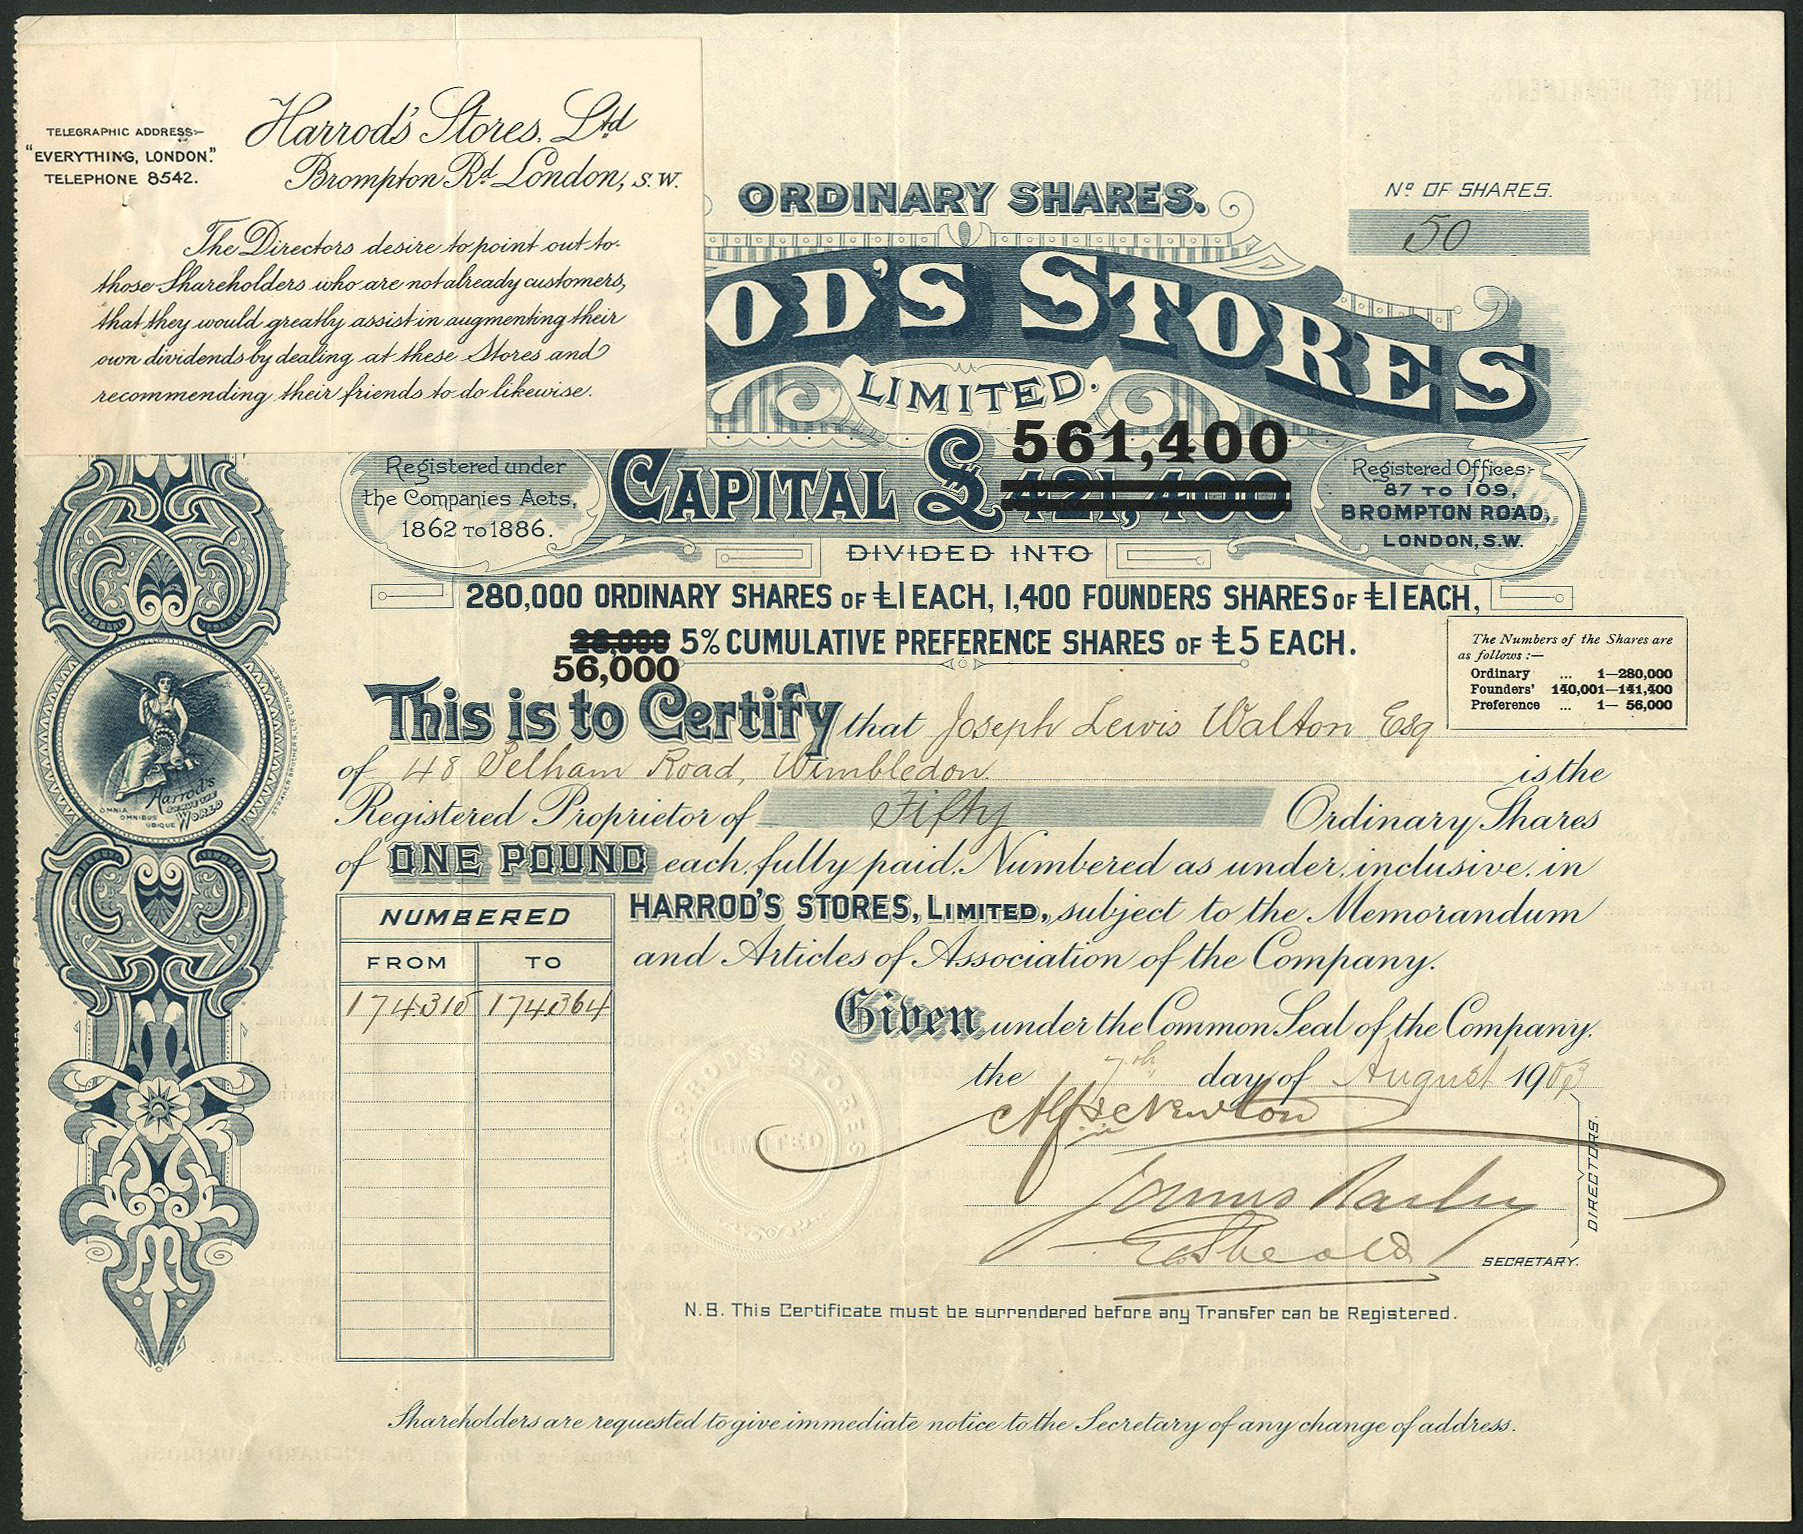 TELEGRAPHIC ADDRESS:-
"EVERYTHING, LONDON."
TELEPHONE 8542.
Harrod's Stores, Ltd
Brompton Rd. London, S.W.
The Directors desire to point out to
those Shareholders who are not already customers,
that they would greatly assist in augmenting their
own dividends by dealing at these Stores and
recommending their friends to do likewise.
ORDINARY SHARES.
No OF SHARES.
50
OD'S STORES
LIMITED.
561,400
CAPITAL £ 421,400
Registered under
the Companies Acts,
1862 TO 1886.
Registered Offices:-
87 TO 109,
BROMPTON ROAD,
LONDON, S.W.
DIVIDED INTO
280,000 ORDINARY SHARES OF £1 EACH, 1,400 FOUNDERS SHARES OF £1 EACH,
28,000 5% CUMULATIVE PREFERENCE SHARES OF £5 EACH.
56,000
The Numbers of the Shares are
as follows :—
Ordinary ... 1—280,000
Founders' 140,001—141,400
Preference ... 1— 56,000
This is to Certify that Joseph Lewis Walton Esq
of 48 Pelham Road, Wimbledon is the
Registered Proprietor of Fifty Ordinary Shares
of ONE POUND each, fully paid, Numbered as under, inclusive, in
HARROD'S STORES, LIMITED, subject to the Memorandum
and Articles of Association of the Company.
NUMBERED
FROM TO
174315 174364
Given under the Common Seal of the Company,
the 7th day of August 1903
HARROD'S STORES
LIMITED
Newton
DIRECTORS.
SECRETARY.
N.B. This Certificate must be surrendered before any Transfer can be Registered.
Shareholders are requested to give immediate notice to the Secretary of any change of address.
Harrod's
SERVE THE
WORLD
OMNIA
OMNIBUS
UBIQUE